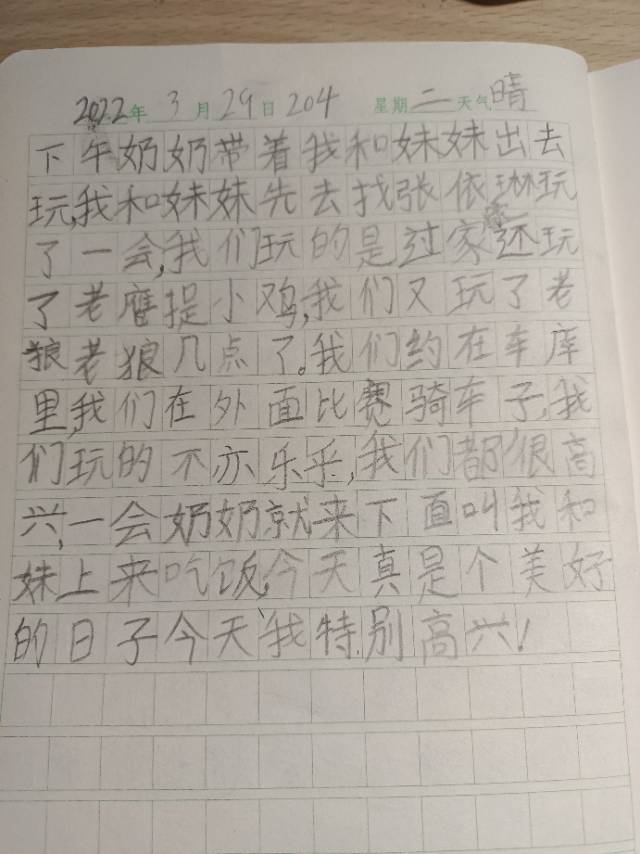 2022年 3月29日 204 星期二 天气晴
下午奶奶带着我和妹妹出去
玩,我和妹妹先去找张依琳玩
了一会,我们玩的是过家家还玩
了老鹰提小鸡,我们又玩了老
狼老狼几点了。我们约在车库
里,我们在外面比赛骑车子,我
们玩的不亦乐乎,我们都很高
兴,一会奶奶就来下面叫我和
妹上来吃饭,今天真是个美好
的日子今天我特别高兴!